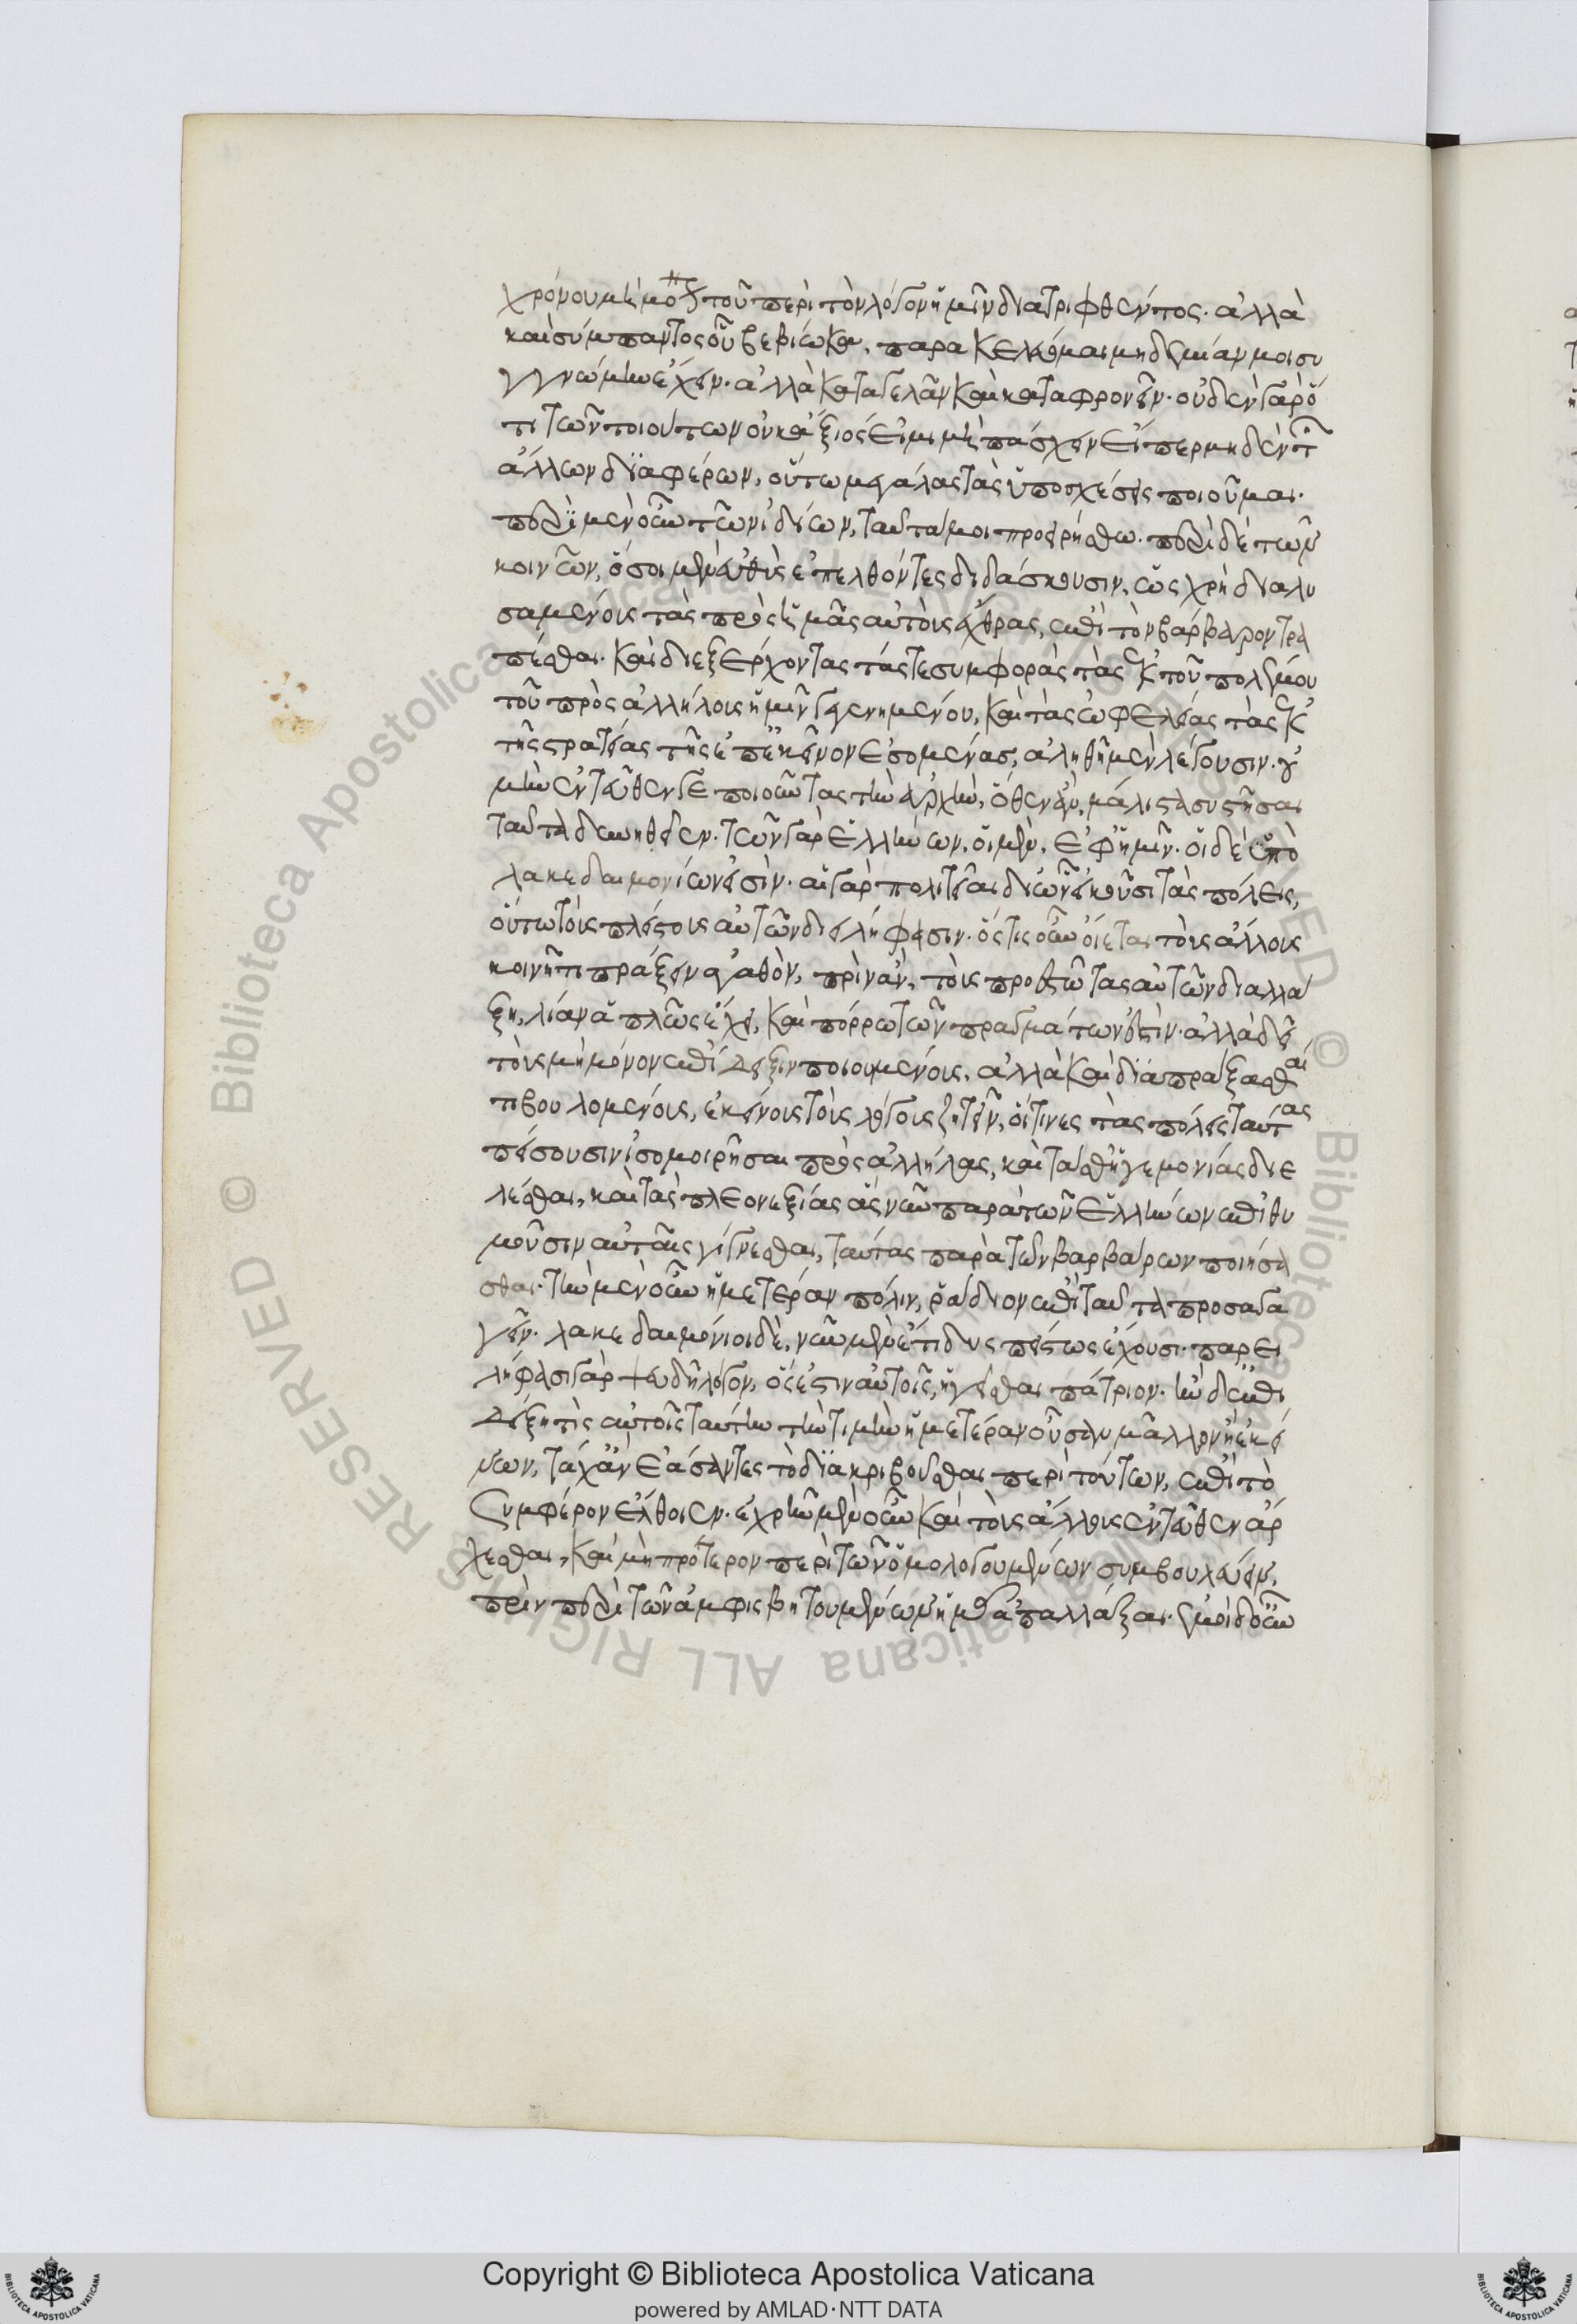 χρόνου μὴ μόνον τοῦ περὶ τὸν λόγον ἡμῖν διατριφθέντος. ἀλλὰ
καὶ σύμπαντος οὗ βεβίωκα, παρακελεύομαι μηδεμίαν μοι συ
γγνώμην ἔχειν. ἀλλὰ καταγελᾶν καὶ καταφρονεῖν. οὐδὲν γὰρ ὅ
τι τῶν τοιούτων οὐκ ἄξιός εἰμι μὴ πάσχειν εἴπερ μηδὲν τῶν
ἄλλων διαφέρων, οὕτω μεγάλας τὰς ὑποσχέσεις ποιοῦμαι.
περὶ μὲν οὖν τῶν ἰδίων, ταῦτά μοι προειρήσθω. περὶ δὲ τῶν
κοινῶν, ὅσοι μὲν εὐθὺς ἐπελθόντες διδάσκουσιν, ὡς χρὴ διαλυ
σαμένους τὰς πρὸς ἡμᾶς αὐτοὺς ἔχθρας, ἐπὶ τὸν βάρβαρον τρα
πέσθαι. καὶ διεξέρχονται τάς τε συμφορὰς τὰς ἐκ τοῦ πολέμου
τοῦ πρὸς ἀλλήλους ἡμῖν γεγενημένου, καὶ τὰς ὠφελείας τὰς ἐκ
τῆς στρατείας τῆς ἐπ' ἐκεῖνον ἐσομένας, ἀληθῆ μὲν λέγουσιν. οὐ
μὴν ἐντεῦθέν γε ποιοῦνται τὴν ἀρχὴν, ὅθεν ἂν, μάλιστα συστῆσαι
ταῦτα δυνηθεῖεν. τῶν γὰρ ἑλλήνων, οἱ μὲν, ἐφ' ἡμῖν. οἱ δὲ ὑπὸ
λακεδαιμονίων εἰσὶν. αἱ γὰρ πολιτεῖαι δι' ὧν οἰκοῦσι τὰς πόλεις,
οὕτω τοὺς πλείστους αὐτῶν διειλήφασιν. ὅστις οὖν οἴεται τοὺς ἄλλους
κοινῇ τι πράξειν ἀγαθὸν, πρὶν ἂν, τοὺς προεστῶτας αὐτῶν διαλλά
ξῃ, λίαν ἁπλῶς ἔχει, καὶ πόρρω τῶν πραγμάτων ἐστὶν. ἀλλὰ δεῖ
τοὺς μὴ μόνον ἐπίδειξιν ποιουμένους, ἀλλὰ καὶ διαπράξασθαί
τι βουλομένους, ἐκείνους τοὺς λόγους ζητεῖν, οἵτινες τὰς πόλεις ταύτας
πείσουσιν ἰσομοιρῆσαι πρὸς ἀλλήλας, καὶ τάς θ' ἡγεμονίας διε
λέσθαι, καὶ τὰς πλεονεξίας ἃς νῦν παρὰ τῶν ἑλλήνων ἐπιθυ
μοῦσιν αὐταῖς γίγνεσθαι, ταύτας παρὰ τῶν βαρβάρων ποιήσα
σθαι. τὴν μὲν οὖν ἡμετέραν πόλιν, ῥᾴδιον ἐπὶ ταῦτα προσαγα
γεῖν. λακεδαιμόνιοι δὲ, νῦν μὲν ἔτι δυσπείστως ἔχουσι. παρει
λήφασι γὰρ ψευδῆ λόγον, ὡς ἔστιν αὐτοῖς, ἡγεῖσθαι πάτριον. ἢν δ' ἐπι
δείξῃ τὶς αὐτοῖς ταύτην τὴν τιμὴν ἡμετέραν οὖσαν μᾶλλον ἢ ἐκεί
νων, τάχ' ἂν ἐάσαντες τὸ διακριβοῦσθαι περὶ τούτων, ἐπὶ τὸ
συμφέρον ἔλθοιεν. ἐχρῆν μὲν οὖν καὶ τοὺς ἄλλους ἐντεῦθεν ἄρ
χεσθαι, καὶ μὴ πρότερον περὶ τῶν ὁμολογουμένων συμβουλεύειν,
πρὶν περὶ τῶν ἀμφισβητουμένων ἡμᾶς ἀπαλλάξαι. ἐμοὶ δ' οὖν
Copyright © Biblioteca Apostolica Vaticana
powered by AMLAD·NTT DATA